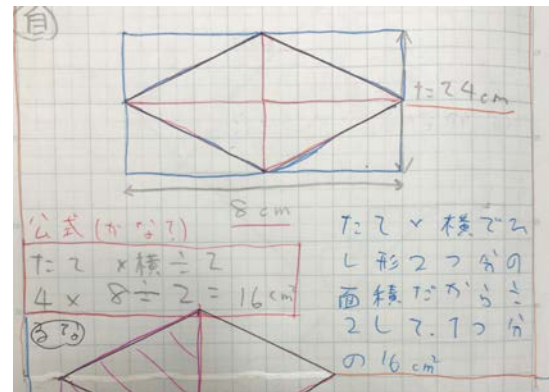 自
たて4cm
8cm
公式(かな?)
たて×横÷2
4×8÷2=16cm²
たて×横でひ
し形2つ分の
面積だから÷
2して、1つ分
の16cm²